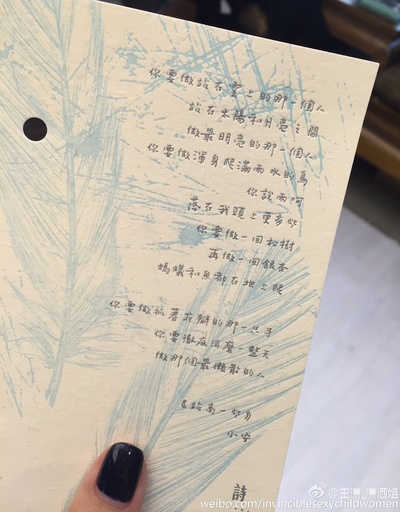 你要做站在雲上的那一個人
站在太陽和月亮之間
做最明亮的那一個人
你要做渾身爬滿雨水的鳥
你說雨呵
落在我頭上更多些
你要做一回松樹
再做一回銀杏
螞蟻和魚都在地上爬
你要做抓著花瓣的那一隻手
你要徹底消磨一整天
做那個最懶散的人
《站高一些》
小安
詩
@王潇_潇洒姐
weibo.com/invinciblesexychildwomen